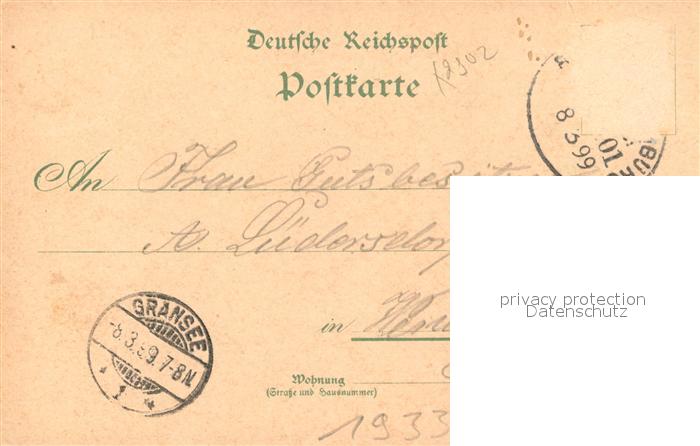 Deutsche Reichspost
Postkarte
12302
8 3 99
10
An Frau Gutsbesitz
A. Lüdersdorf
in
GRANSEE
-8.3.99. 7-8N.
1
Wohnung
(Straße und Hausnummer)
1933
privacy protection
Datenschutz